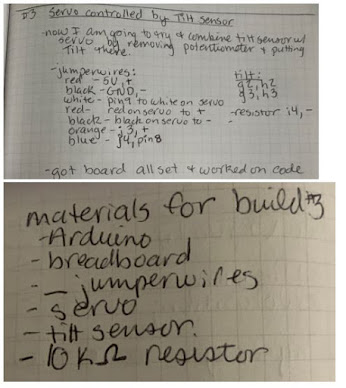 #3 Servo controlled by Tilt sensor
- now I am going to try & combine tilt sensor w/
servo by removing potentiometer & putting
Tilt there.
- jumperwires:
red - 5V, +
black - GND, -
white - pin9 to white on servo
red - red on servo to +
black - black on servo to -
orange - j3, +
blue - j4, pin8
tilt:
g2, h2
g3, h3
- resistor i4, -
- got board all set & worked on code
materials for build #3
- Arduino
- breadboard
- __ jumperwires
- servo
- tilt sensor
- 10kΩ resistor